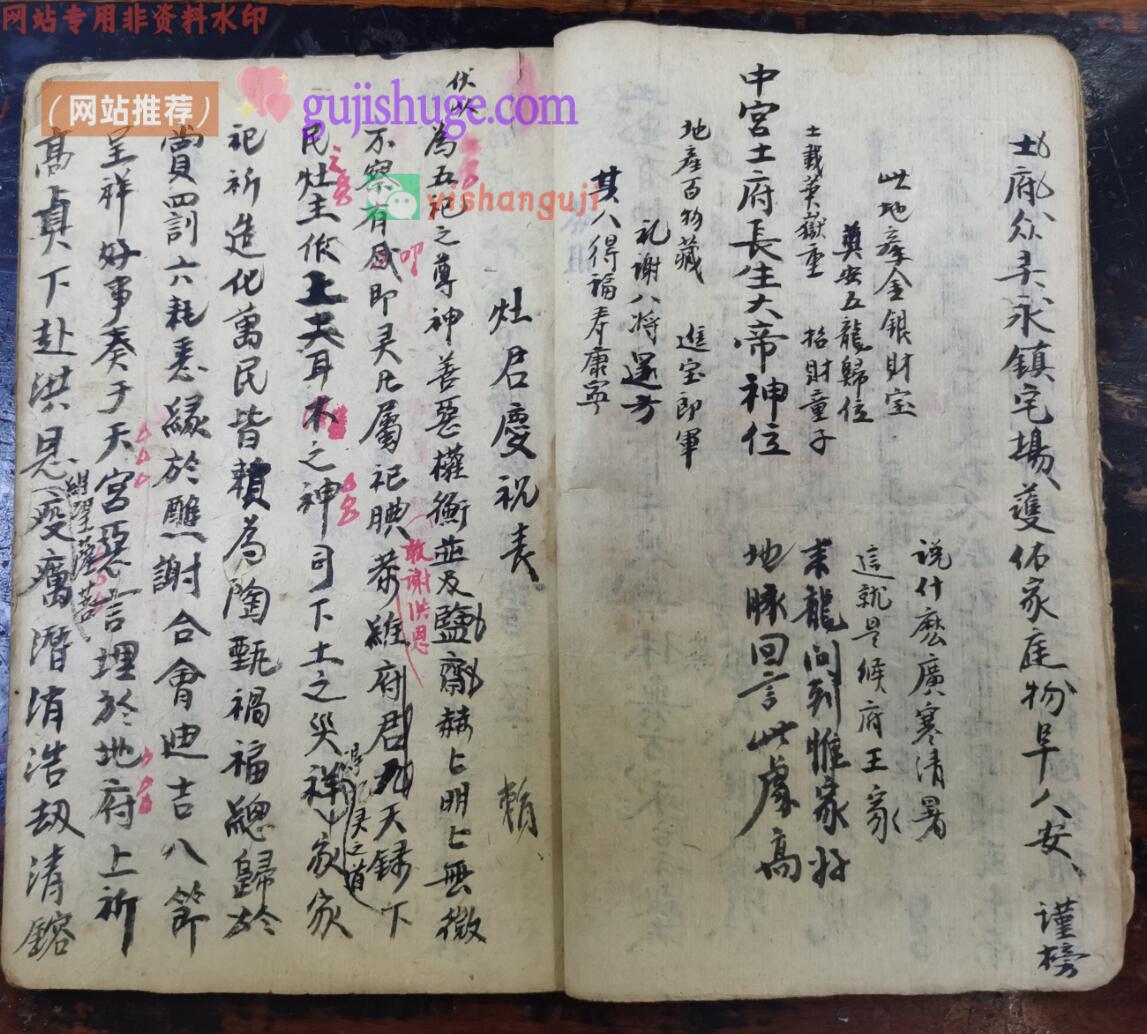 网站专用非资料水印
（网站推荐）
gujishuge.com
yishanguji
土府众圣永鎮宅場護佑家庭物阜人安、謹榜
此地產金銀財宝
奠安五龍歸位
土載英嶽重
招財童子
中宮土府長生大帝神位
地產百物藏
進宝郎軍
礼谢八将還方
其八得福寿康寧
说什麽廣寒清暑
這就是候府王家
来龍问到惟家好
地脉回言此處高
灶君慶祝表
賴
伏以
為五祀之尊神善惡權衡並及鹽齋赫匕明匕無微
不察有感即灵凡屬祀典恭維府君九天録下
叩
敢谢洪恩
民灶主修上天耳木之神司下土之災祥家家
得 灵之道
祀祈造化萬民皆賴為陶甄禍福總歸於
賞四訓六耗悉緣於醮謝合會迪吉八節
呈祥好事奏于天宮惡言埋於地府上祈
高真下赴洪恩 疫癘潛消浩劫清鎔